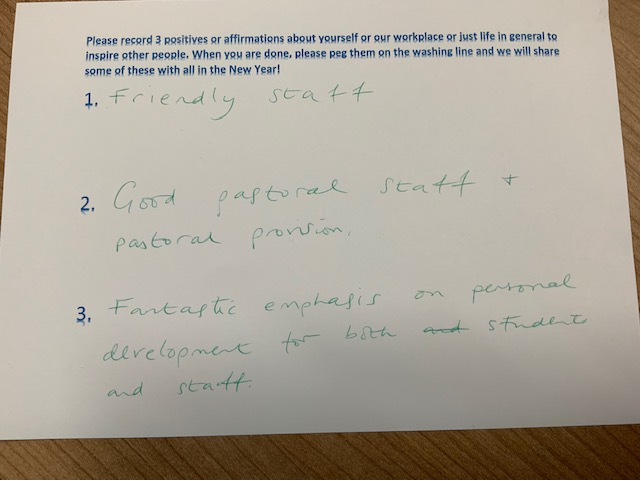 Please record 3 positives or affirmations about yourself or our workplace or just life in general to
inspire other people. When you are done, please peg them on the washing line and we will share
some of these with all in the New Year!
1. Friendly staff
2. Good pastoral staff +
pastoral provision.
3. Fantastic emphasis on personal
development for both and students
and staff.